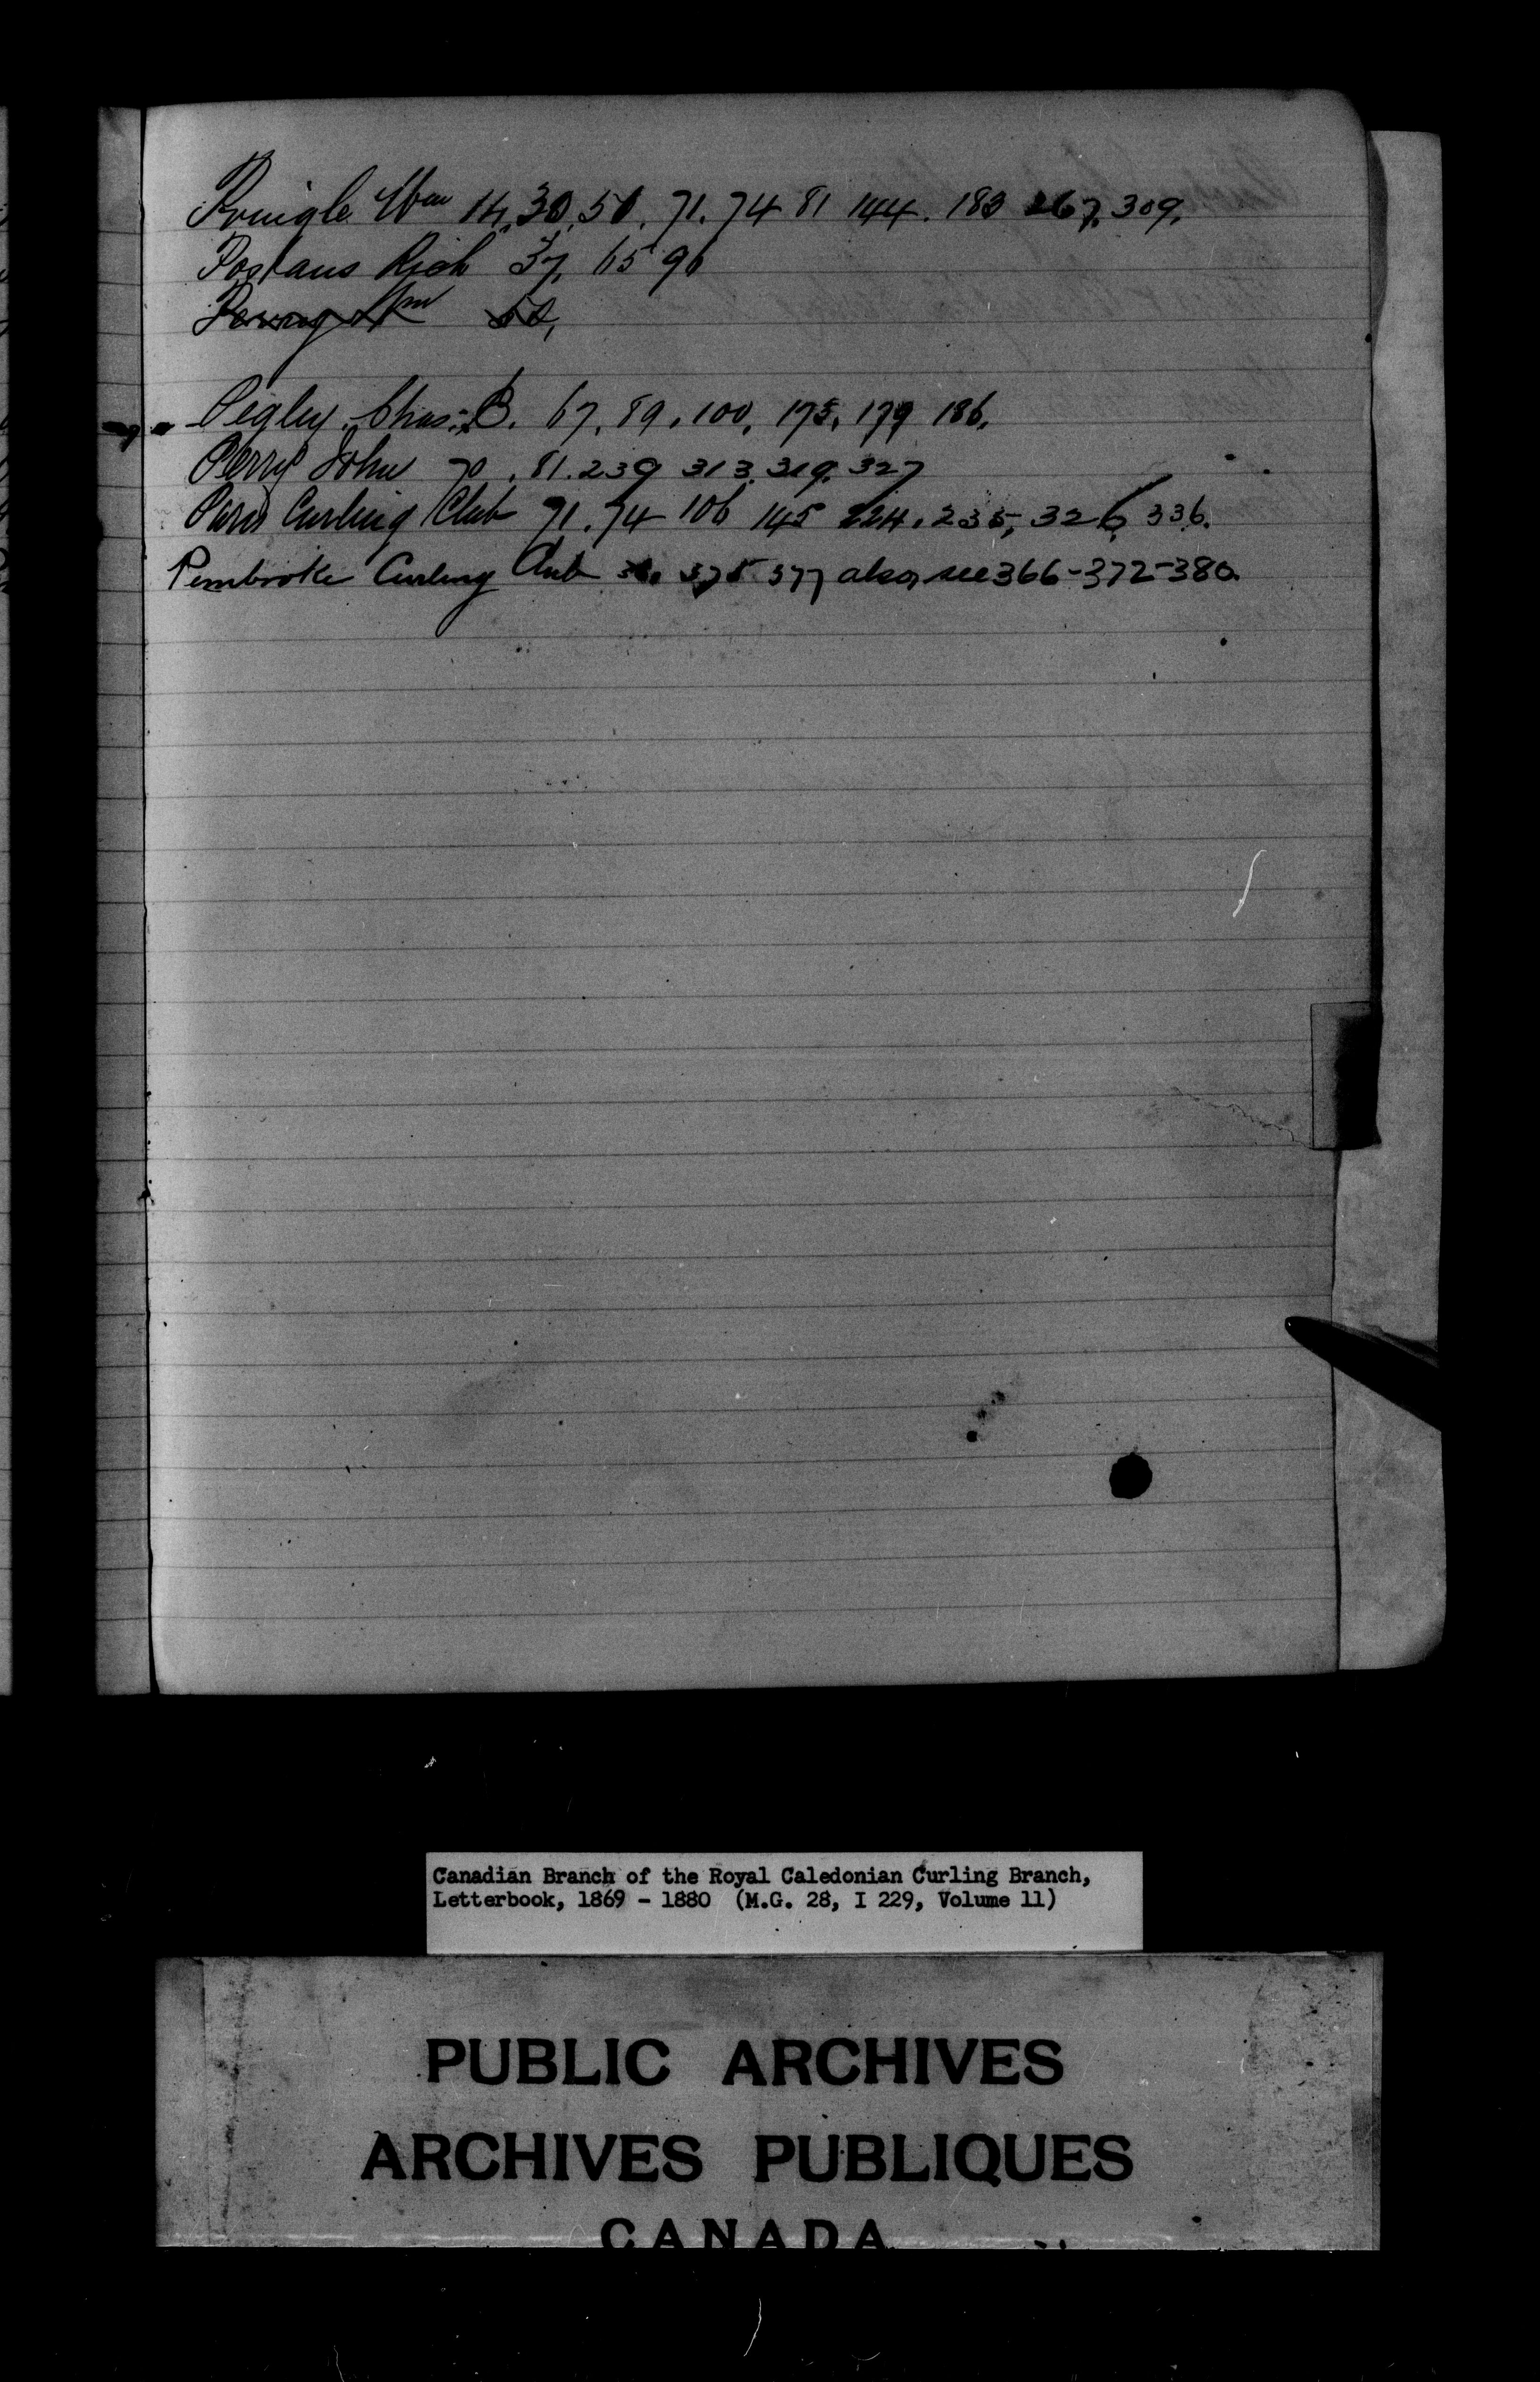 Pringle Wm 14, 30, 50, 71. 74 81 144. 183 267, 309,
Postans Rich 37, 65 96
Pegley. Chas: B. 67, 89, 100, 175, 179 186,
Perry John 70, 81. 239 313. 319. 327
Paris Curling Club 71. 74 106 145 224. 235, 326, 336.
Pembroke Curling Club 375 377 also, see 366-372-380.
Canadian Branch of the Royal Caledonian Curling Branch,
Letterbook, 1869 - 1880 (M.G. 28, I 229, Volume 11)
PUBLIC ARCHIVES
ARCHIVES PUBLIQUES
CANADA